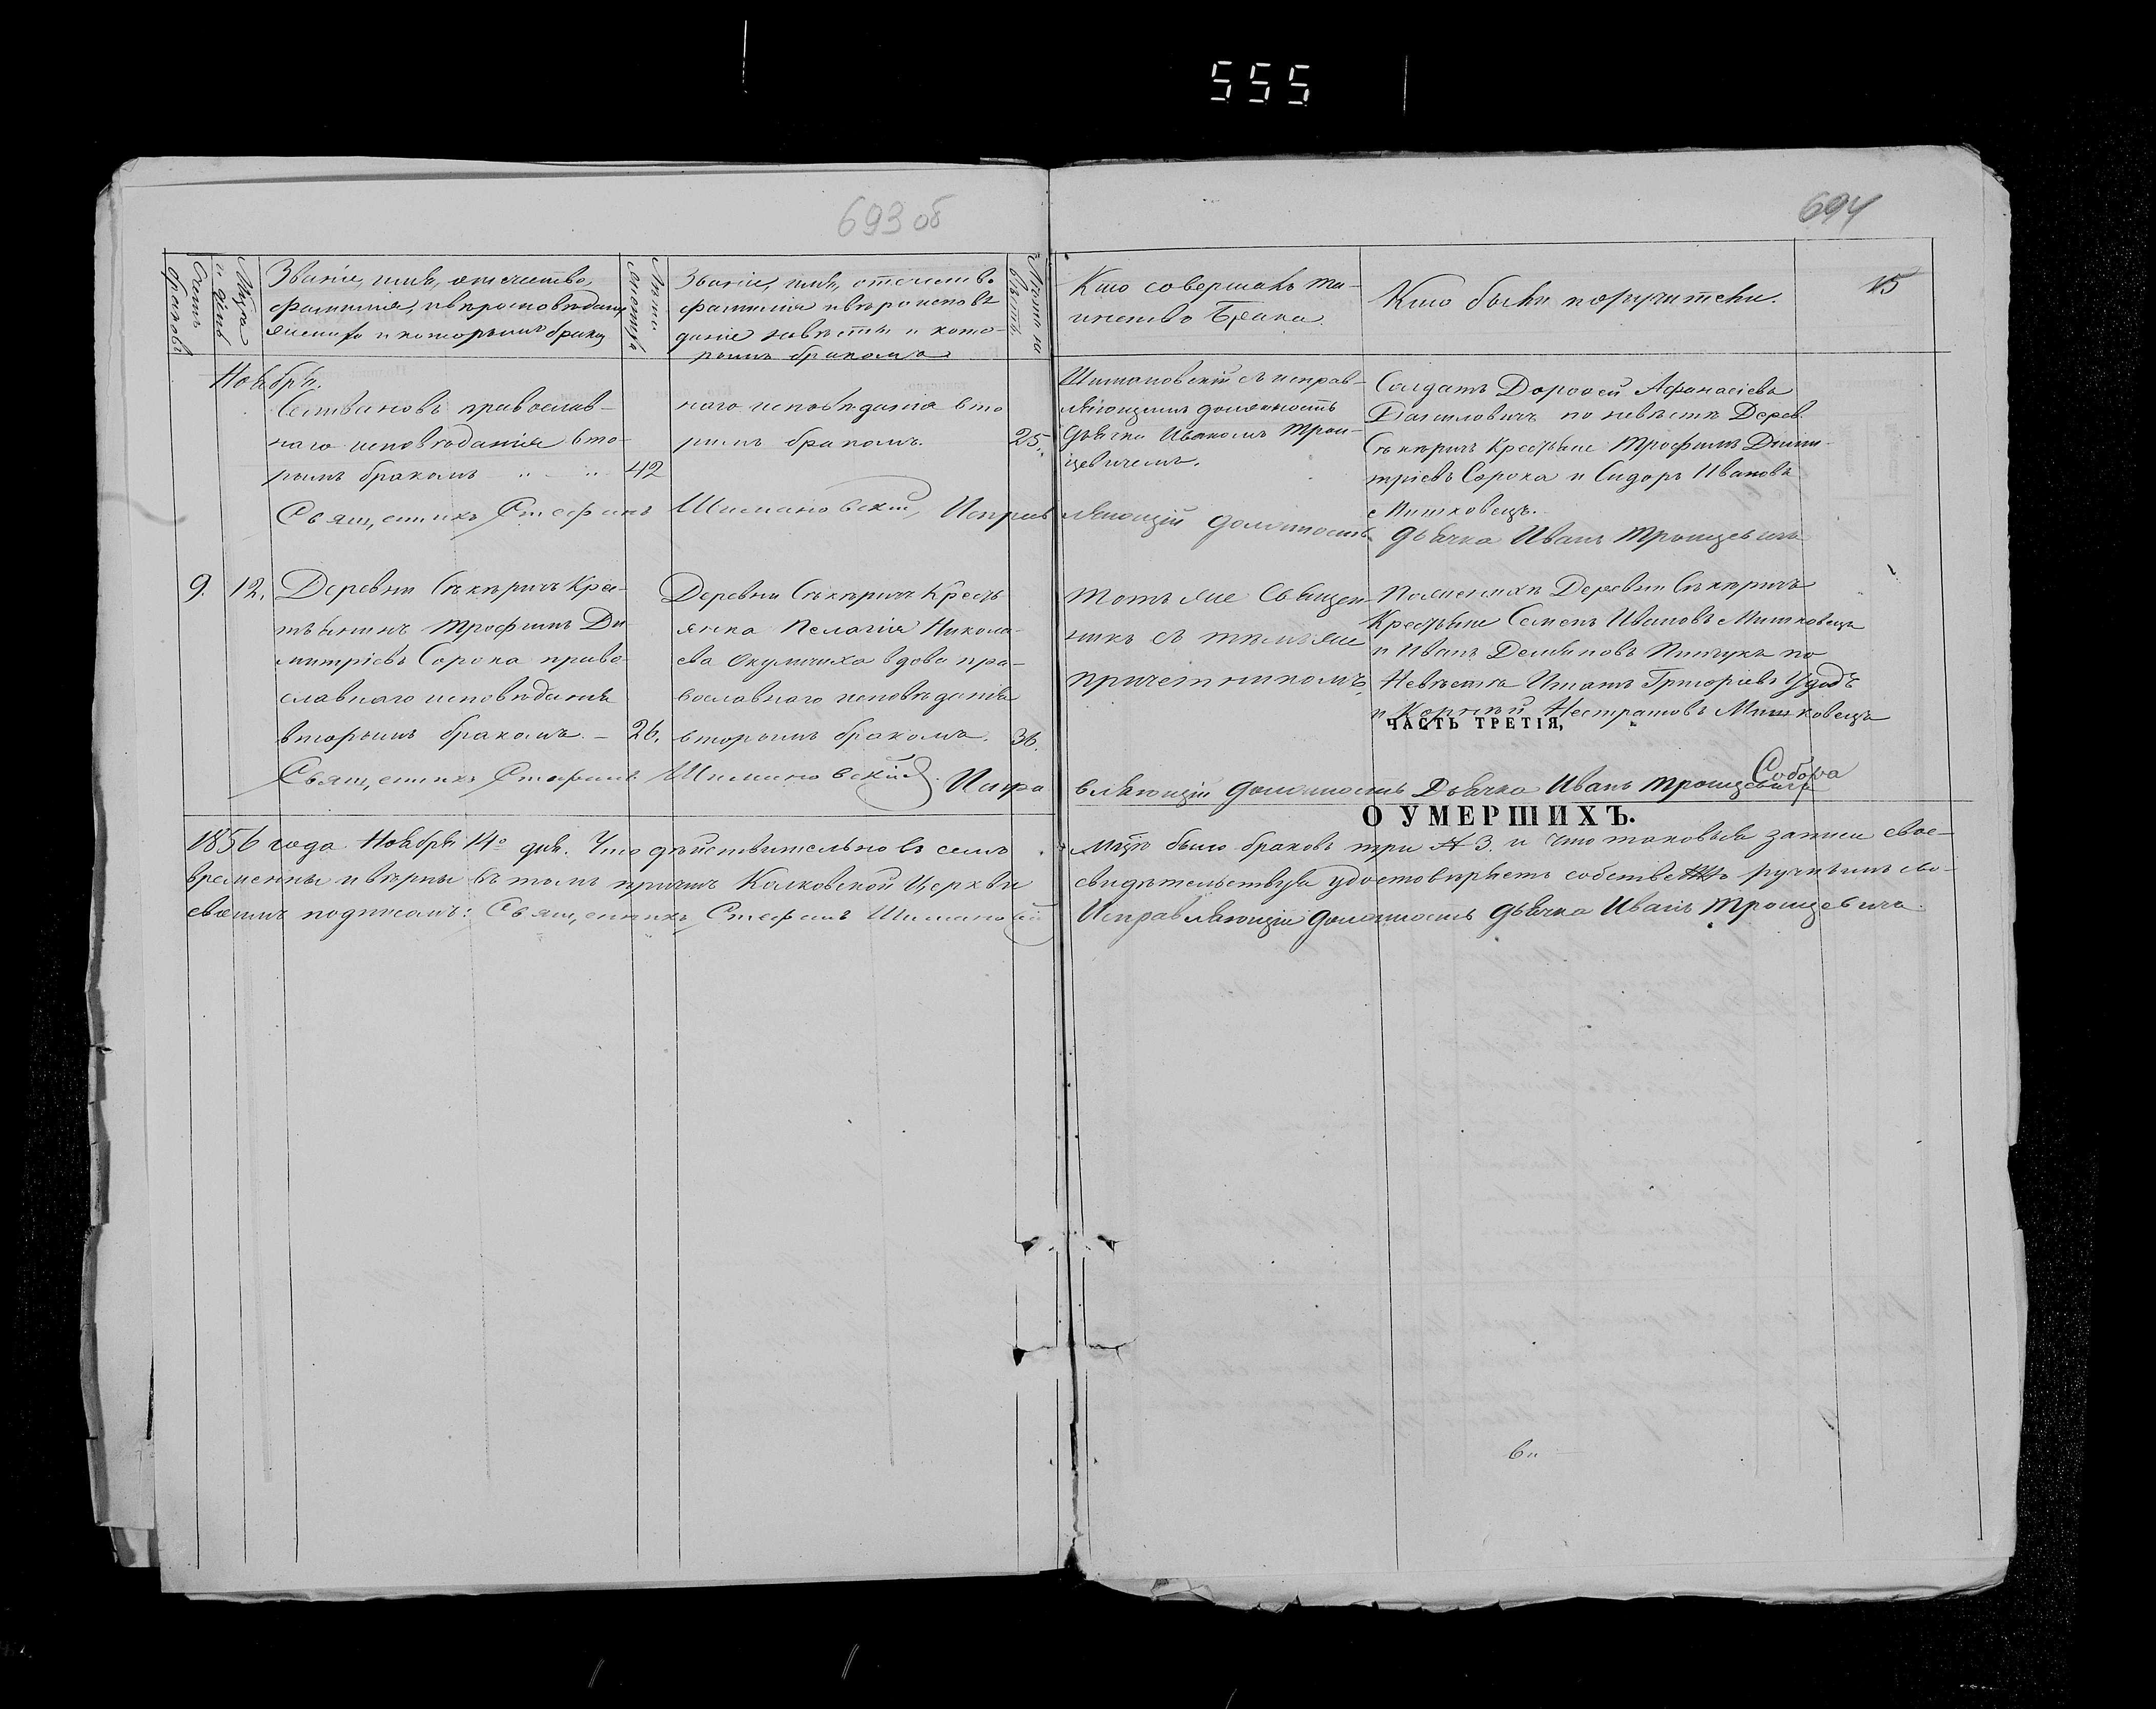 555
693 об
694
15
Счетъ браковъ
Мѣсяц и день
Званіе, имя, отечество,
фамилія, и вѣроисповѣданіе
жениха и которымъ бракомъ
Лѣта жениха
Званіе, имя, отечество
фамилія и вѣроисповѣ
даніе невѣсты и кото-
рымъ бракомъ
Лѣта не вѣсты
Кто совершалъ та-
инство Брака.
Кто были поручители.
Ноября.
православ-
наго исповѣданія вто-
рымъ бракомъ 42
наго исповѣданія вто
рымъ бракомъ. 25.
Шимановскій съ исправ-
ляющимъ должность
дьячка Иваномъ Трои-
цевичемъ.
Солдатъ Дорофей Афанасіевъ
Данилович по невѣстѣ Дерев.
Сѣкѣричъ Крестьяне Трофимъ Дими-
тріевъ Сорока и Сидоръ Ивановъ
Мишковецъ.
Священникъ Стефанъ Шимановскій, Исправляющій должность дьячка Иванъ Троицевичъ
9. 12. Деревни Сѣкѣричъ Крес-
тьянинъ Трофимъ Ди-
митріевъ Сорока право-
славнаго исповѣданія
вторымъ бракомъ. – 26.
Деревни Сѣкѣричъ Кресть
янка Пелагія Никола-
ева Окуличиха вдова пра-
вославнаго исповѣданія
вторымъ бракомъ. 36.
Тотъ же Священ-
никъ съ тѣмъ же
причетникомъ.
По женихѣ Деревни Сѣкѣричъ
Крестьяне Семенъ Ивановъ Мишковецъ
и Иванъ Демьяновъ Пинчукъ по
Невѣстѣ Игнатъ Григорьевъ Удодъ
и Корній Нестратовъ Мишковецъ
ЧАСТЬ ТРЕТІЯ,
Священникъ Стефанъ Шимановскій. Исправляющій должность Дьячка Иванъ Троицевичъ
О УМЕРШИХЪ.
1856 года Ноября 14º дня. Что дѣйствительно въ семъ мѣсяцѣ было браковъ три № 3. и что таковыя записи свое-
временны и вѣрны въ томъ причтъ Колковской Церкви свидѣтельствуя удостовѣряетъ собственно ручнымъ сво-
еимъ подписомъ: Священникъ Стефанъ Шимановскій Исправляющій должность дьячка Иванъ Троицевичъ.